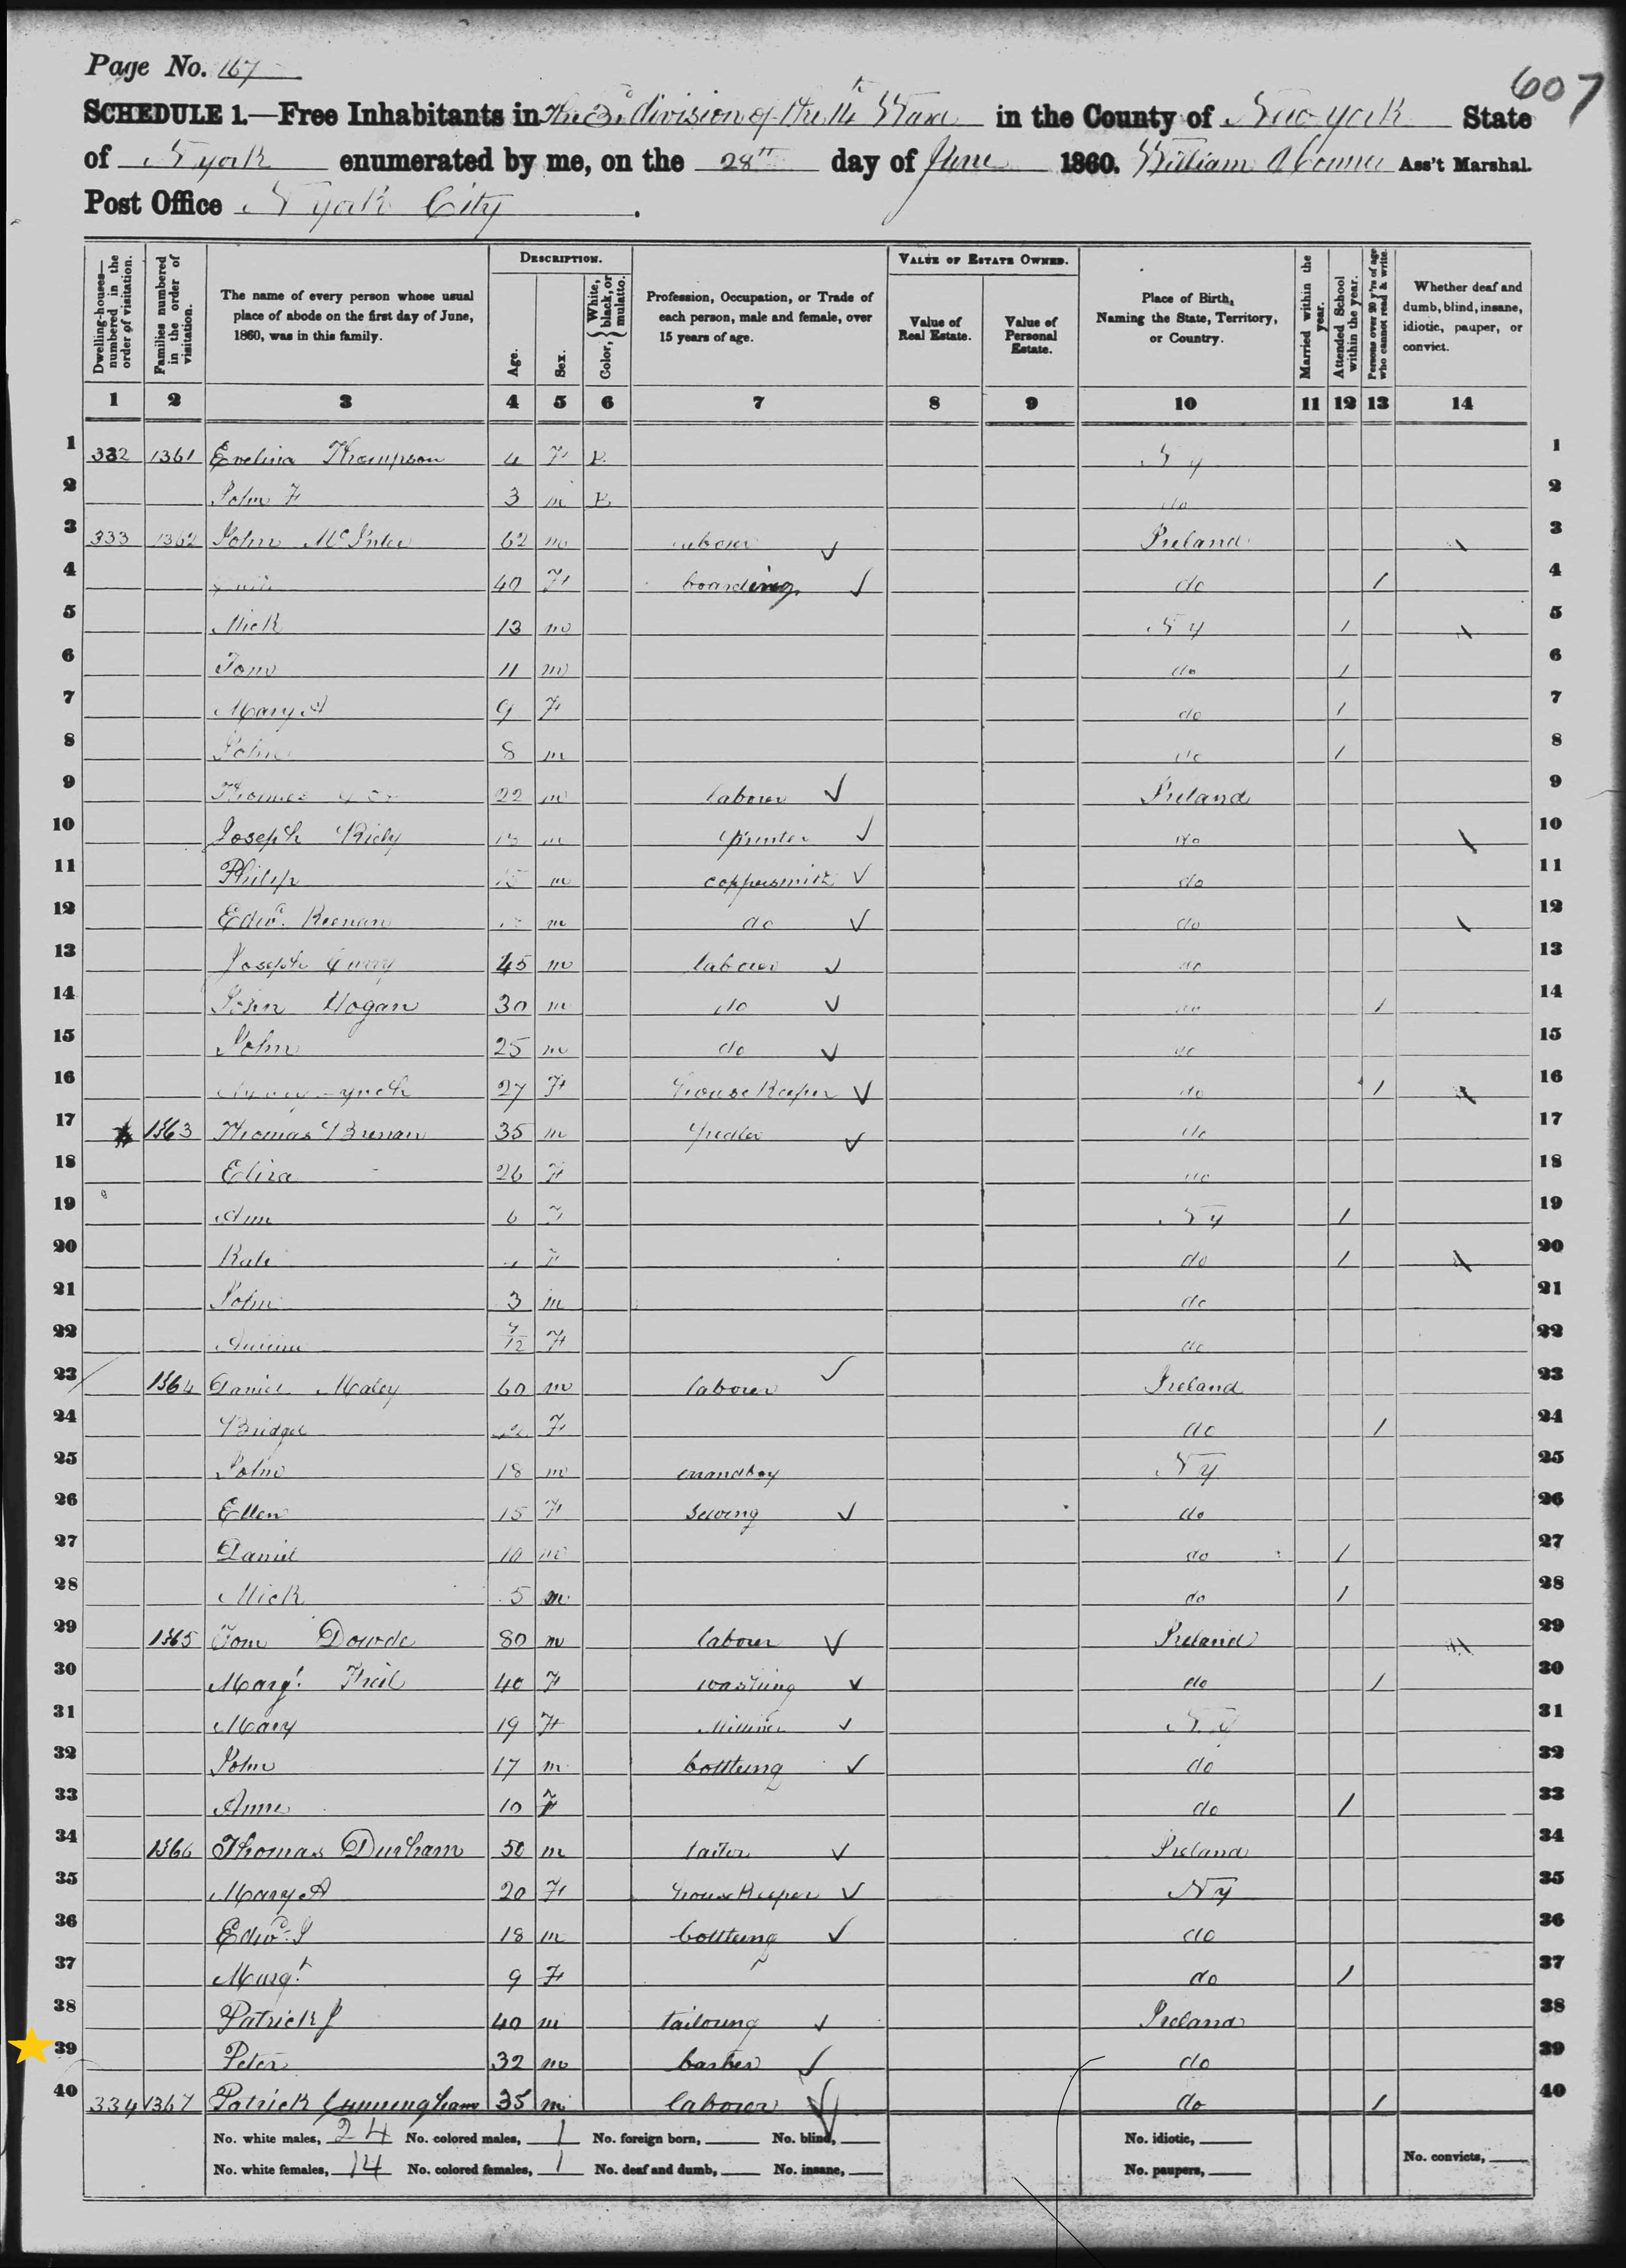 Page No. 167
607
SCHEDULE 1.—Free Inhabitants in the 3d division of the Ward in the County of New York State
of N york enumerated by me, on the 28th day of June 1860. William Ass't Marshal.
Post Office N York City.
Dwelling-houses—numbered in the order of visitation.
Families numbered in the order of visitation.
The name of every person whose usual place of abode on the first day of June, 1860, was in this family.
DESCRIPTION.
Age.
Sex.
Color, { White, black, or mulatto.
Profession, Occupation, or Trade of each person, male and female, over 15 years of age.
VALUE OF ESTATE OWNED.
Value of Real Estate.
Value of Personal Estate.
Place of Birth, Naming the State, Territory, or Country.
Married within the year.
Attended School within the year.
Persons over 20 y'rs of age who cannot read & write.
Whether deaf and dumb, blind, insane, idiotic, pauper, or convict.
1 2 3 4 5 6 7 8 9 10 11 12 13 14
1 332 1361 Evelina Thompson 4 F B N y 1
2 John F 3 m B do 2
3 333 1362 John 62 m laborer Ireland 3
4 40 F boarding do 1 4
5 Mick 13 m N y 1 5
6 Tom 11 m do 1 6
7 Mary A 9 F do 1 7
8 John 8 m do 1 8
9 Thomas 22 m laborer Ireland 9
10 Joseph m printer do 10
11 Philip m coppersmith do 11
12 Edwd. Keenan m do do 12
13 Joseph Curry 45 m laborer do 13
14 John Hogan 30 m do do 1 14
15 John 25 m do do 15
16 Lynch 27 F house Keeper do 1 16
17 1363 Thomas Brenan 35 m do 17
18 Eliza 26 F do 18
19 Ann 6 F N y 1 19
20 Kate F do 1 20
21 John 3 m do 21
22 /12 F do 22
23 1364 Daniel Maley 60 m laborer Ireland 23
24 Bridget F do 1 24
25 John 18 m errand boy N y 25
26 Ellen 15 F Sewing do 26
27 Daniel 10 m do 1 27
28 Mick 5 m do 1 28
29 1365 Tom Dowde 80 m laborer Ireland 29
30 Margt. 40 F washing do 1 30
31 Mary 19 F Milliner N y 31
32 John 17 m bottling do 32
33 Anne 10 F do 1 33
34 1366 Thomas Durham 50 m tailor Ireland 34
35 Mary A 20 F house Keeper N y 35
36 Edwd. J 18 m bottling do 36
37 Margt 9 F do 1 37
38 Patrick J 40 m tailoring Ireland 38
39 Peter 32 m barber do 39
40 334 1367 Patrick Cunningham 35 m laborer do 1 40
No. white males, 24 No. colored males, 1 No. foreign born, No. blind, No. idiotic,
No. white females, 14 No. colored females, 1 No. deaf and dumb, No. insane, No. paupers, No. convicts,